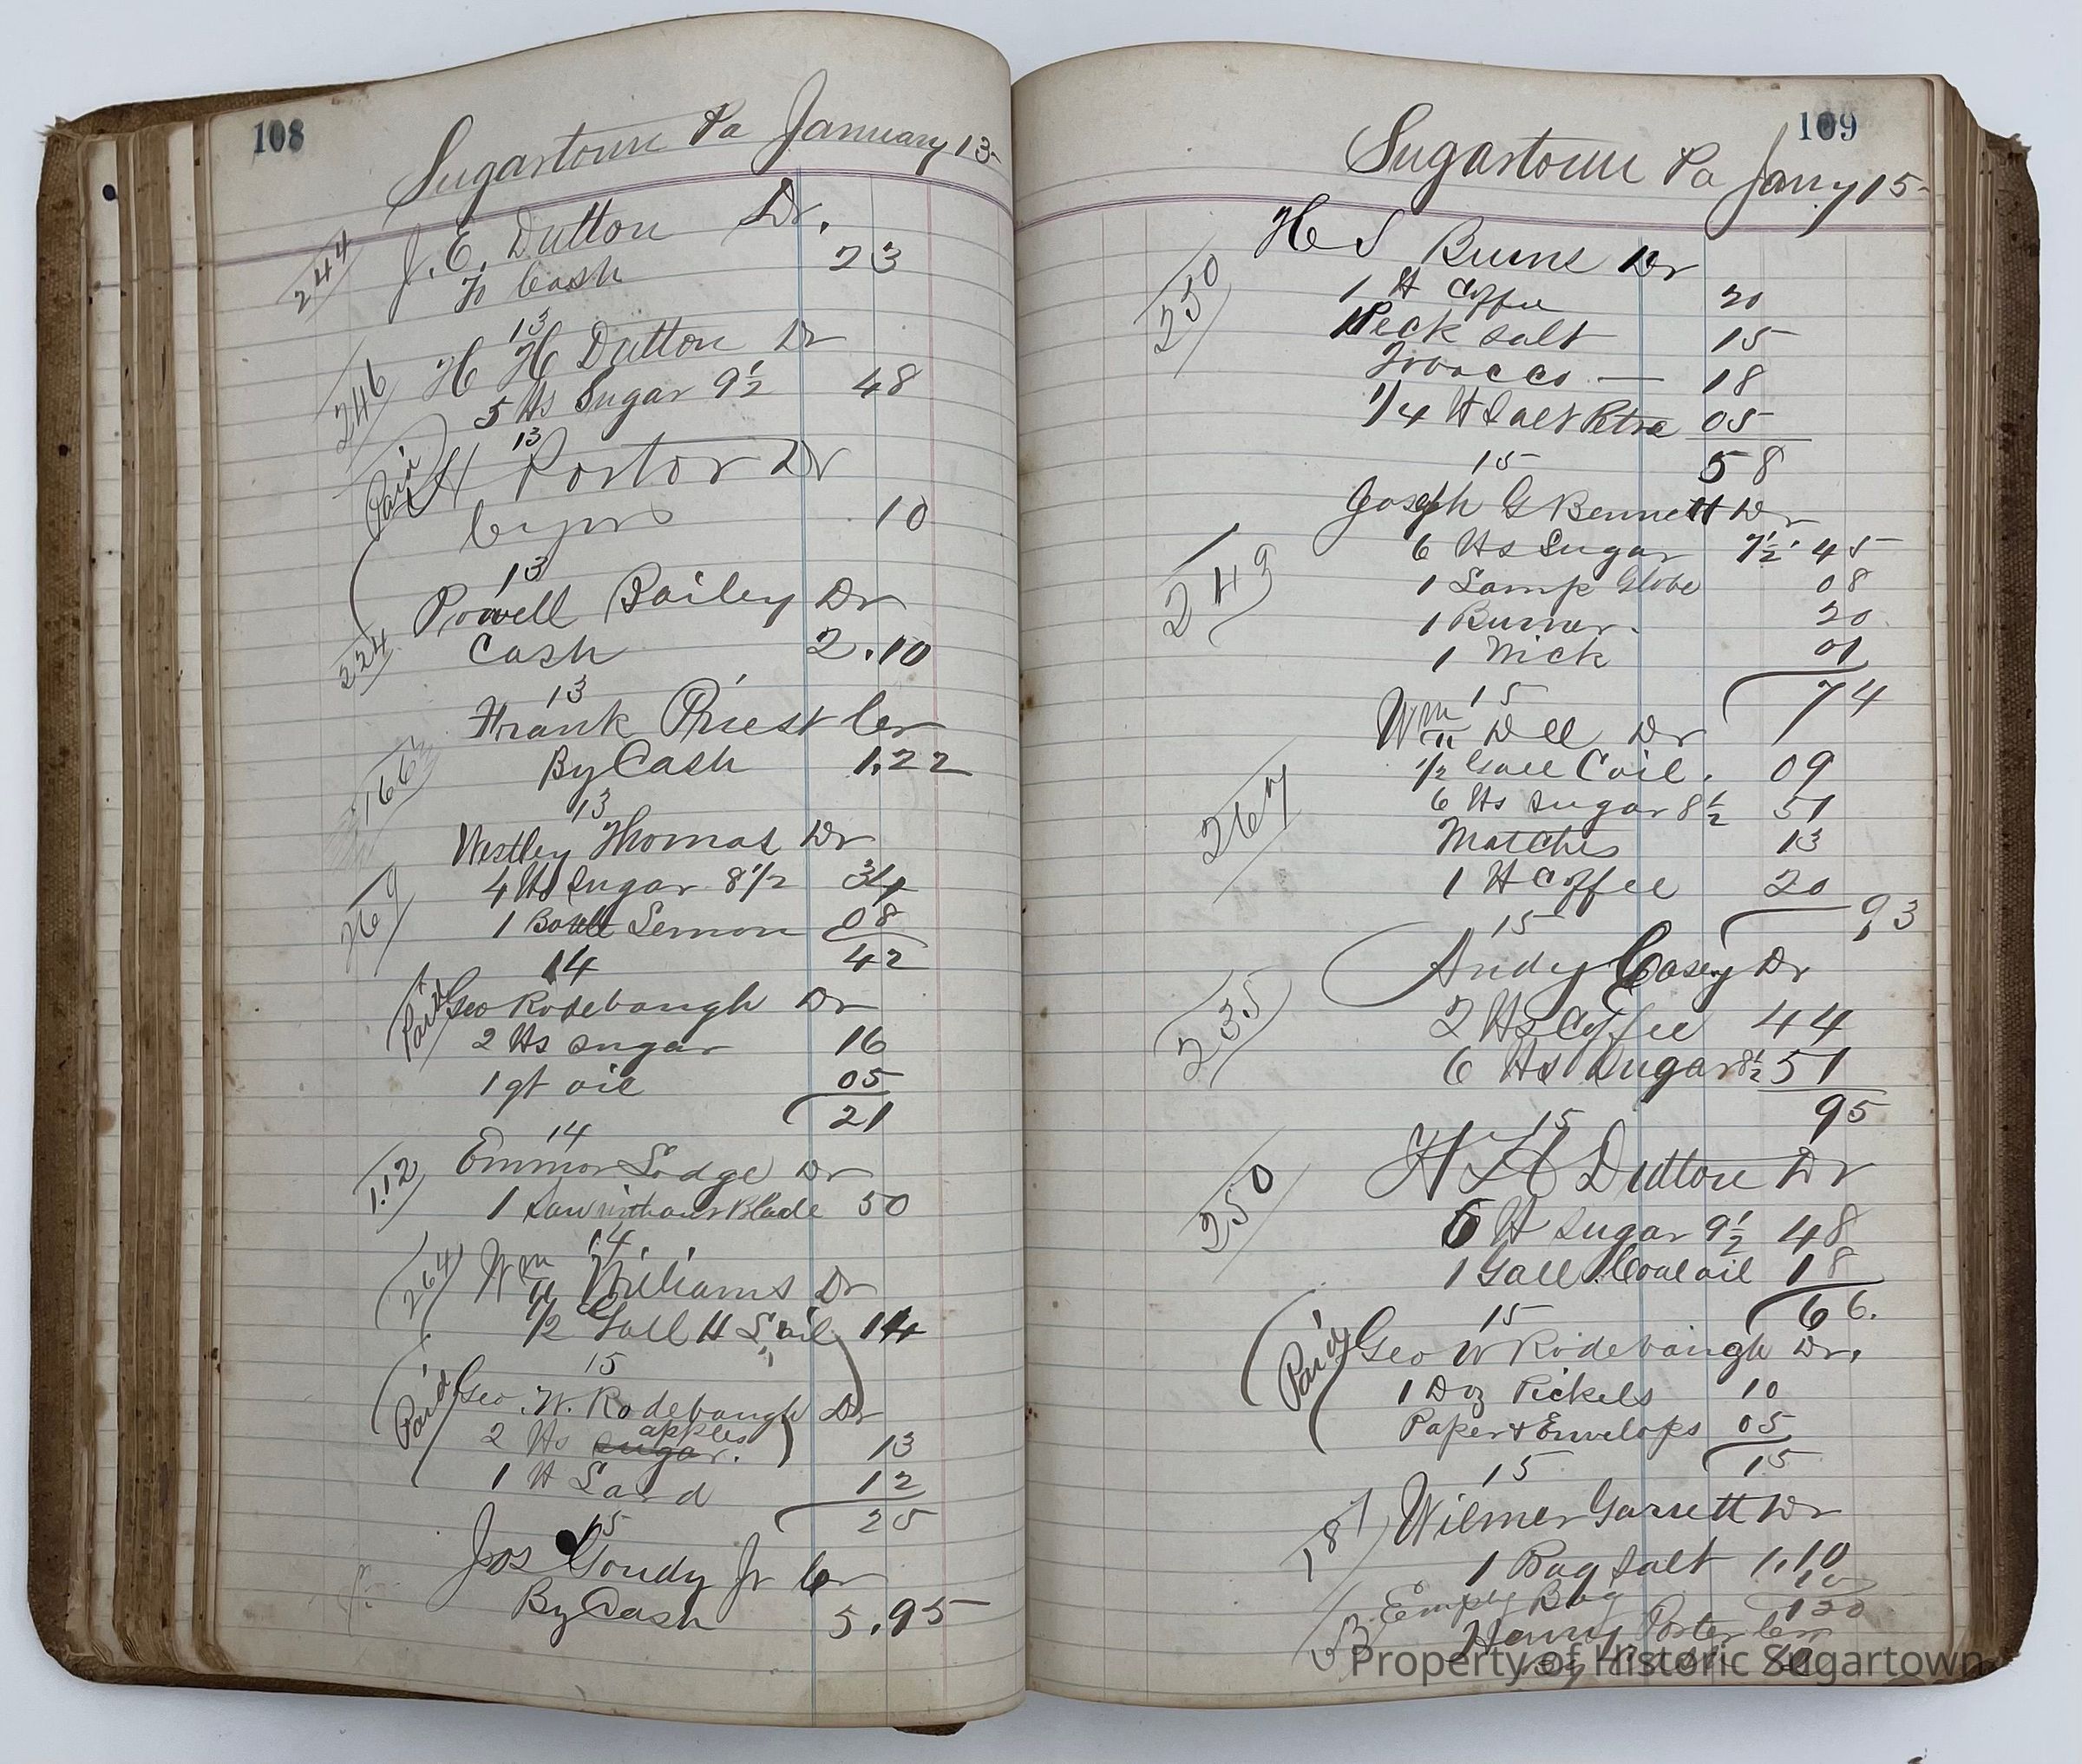 108
Sugartown Pa January 13-
244
J. E. Dutton Dr.
To Cash 23
13
246
H H Dutton Dr
5 lbs Sugar 9 1/2 48
13
Paid
H Portor Dr
10
13
Powell Bailey Dr
224
Cash 2.10
13
Frank Priest Cr
166
By Cash 1.22
13
Westley Thomas Dr
4 lbs Sugar 8 1/2 34
269
1 Bottle Lemon 08
42
14
Paid
Geo Rodebaugh Dr
2 lbs sugar 16
1 qt oil 05
21
14
112
Emmor Lodge Dr
1 Saw without Blade 50
14
264
Wm Williams Dr
1/2 Gall H L oil 14
15
Paid
Geo. W. Rodebaugh Dr
2 lbs sugar. apples 13
1 lb Lard 12
25
15
Jos Goudy Jr Cr
By Cash 5.95
109
Sugartown Pa Jany 15-
H S Burns Dr
250
1 lb Coffee 20
1 Peck salt 15
Tobacco — 18
1/4 lb Salt Petre 05
58
15
Joseph G Bennett Dr
243
6 lbs Sugar 7 1/2 45
1 Lamp Globe 08
1 Burner. 20
1 Wick 01
74
15
Wm Dell Dr
267
1/2 Gall Coil. 09
6 lbs sugar 8 1/2 51
Matches 13
1 lb Coffee 20
93
15
Andy Casey Dr
235
2 lbs Coffee 44
6 lbs Sugar 8 1/2 51
95
15
H H Dutton Dr
250
5 lb sugar 9 1/2 48
1 Gall Coal oil 18
66.
15
Paid
Geo W Rodebaugh Dr.
1 Doz Pickels 10
Paper & Envelops 05
15
15
187
Wilmer Garrett Dr
1 Bag salt 1.10
Empty Bag 10
120
53
Henry Porter Cr
Property of Historic Sugartown